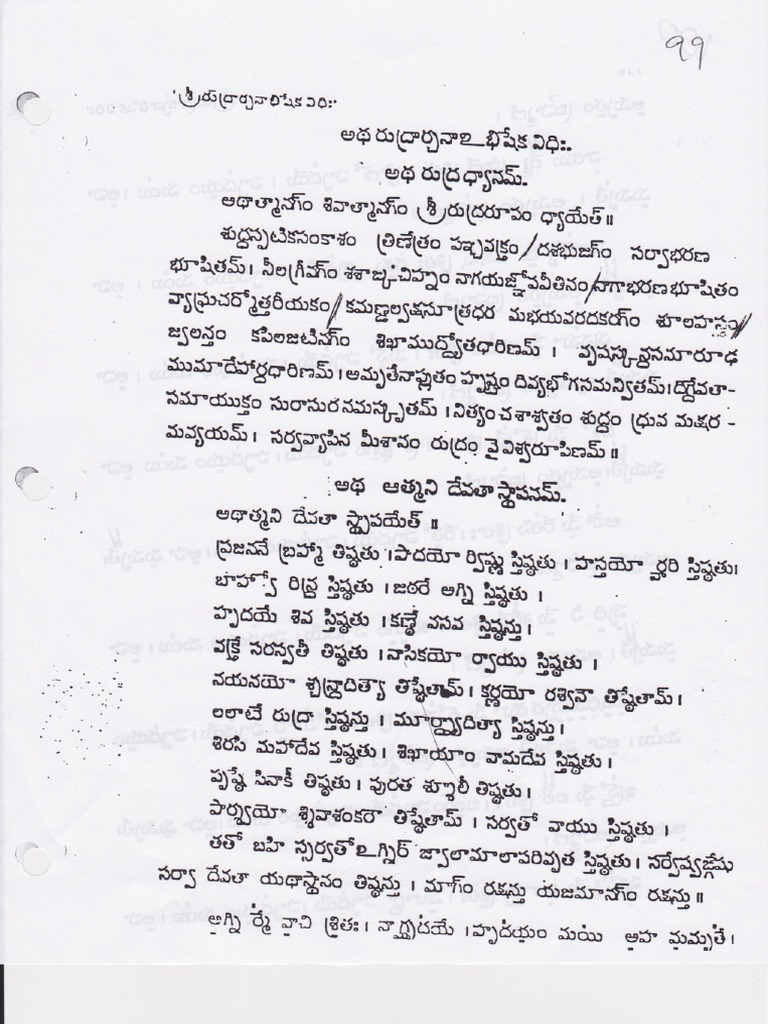 ११
"శ్రీరుద్రార్చనాభిషేక విధిః"
అథ రుద్రార్చనాఽభిషేక విధిః.
అథ రుద్ర ధ్యానమ్.
అథాత్మానగ్ం శివాత్మానగ్ం శ్రీ రుద్రరూపం ధ్యాయేత్॥
శుద్ధస్ఫటికసంకాశం త్రిణేత్రం పఞ్చవక్త్రం/దశభుజగ్ం సర్వాభరణ
భూషితమ్। నీలగ్రీవగ్ం శశాఙ్కచిహ్నం నాగయజ్ఞోపవీతినం/నాగాభరణ భూషితం
వ్యాఘ్రచర్మోత్తరీయకం/కమణ్డల్వక్షసూత్రధర మభయవరదకరగ్ం శూలహస్తం/
జ్వలన్తం కపిలజటినగ్ం శిఖాముద్ద్యోతధారిణమ్। వృషస్కన్ధసమారూఢ
ముమాదేహార్ధధారిణమ్।అమృతేనాప్లుతం హృష్టం దివ్యభోగసమన్వితమ్।దిగ్దేవతా-
సమాయుక్తం సురాసురనమస్కృతమ్।నిత్యం చ శాశ్వతం శుద్ధం ధ్రువ మక్షర-
మవ్యయమ్। సర్వవ్యాపిన మీశానం రుద్రం వై విశ్వరూపిణమ్॥
అథ ఆత్మని దేవతా స్థాపనమ్.
అథాత్మని దేవతా స్థాపయేత్॥
ప్రజననే బ్రహ్మా తిష్ఠతు।పాదయో ర్విష్ణు స్తిష్ఠతు। హస్తయో ర్హరి స్తిష్ఠతు।
బాహ్వో రిన్ద్ర స్తిష్ఠతు।జఠరే అగ్ని స్తిష్ఠతు।
హృదయే శివ స్తిష్ఠతు।కణ్ఠే వసవ స్తిష్ఠన్తు।
వక్త్రే సరస్వతీ తిష్ఠతు।నాసికయో ర్వాయు స్తిష్ఠతు।
నయనయో శ్చన్ద్రాదిత్యా తిష్ఠేతామ్।కర్ణయో రశ్వినౌ తిష్ఠేతామ్।
లలాటే రుద్రా స్తిష్ఠన్తు।మూర్ధ్న్యాదిత్యా స్తిష్ఠన్తు।
శిరసి మహాదేవ స్తిష్ఠతు। శిఖాయాం వామదేవ స్తిష్ఠతు।
పృష్ఠే పినాకీ తిష్ఠతు।పురత శ్శూలీ తిష్ఠతు।
పార్శ్వయో శ్శివాశంకరౌ తిష్ఠేతామ్। సర్వతో వాయు స్తిష్ఠతు।
తతో బహి స్సర్వతోఽగ్నిర్ జ్వాలామాలాపరివృత స్తిష్ఠతు। సర్వేష్వఙ్గేషు
సర్వా దేవతా యథాస్థానం తిష్ఠన్తు। మాగ్ం రక్షన్తు యజమానగ్ం రక్షన్తు॥
అ॒గ్ని ర్మే॑ వా॒చి శ్రి॒తః। వాగ్ఘృద॑యే।హృద॑యం॒ మయి॑ అ॒హ మ॒మృతే॑।